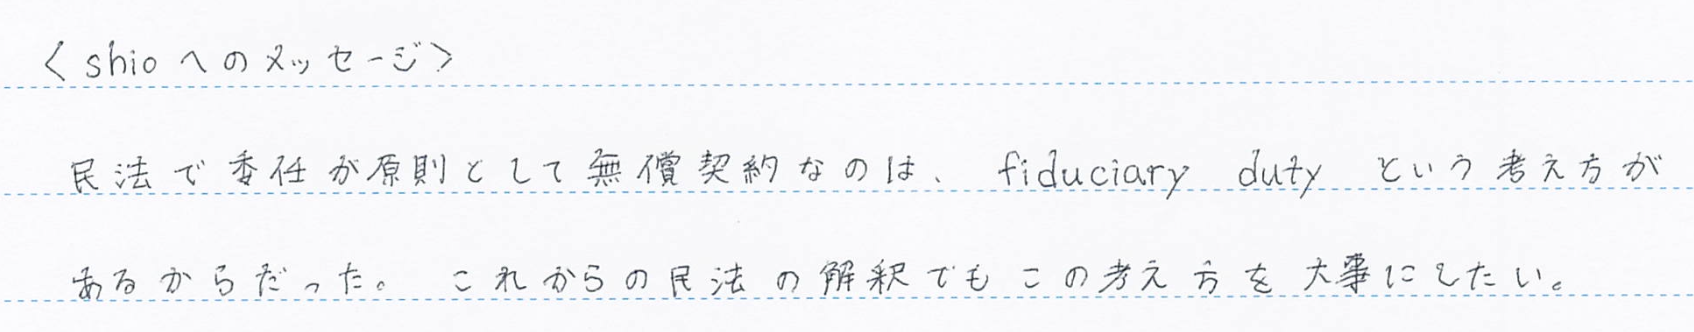 〈shioへのメッセージ〉
民法で委任が原則として無償契約なのは、 fiduciary duty という考え方が
あるからだった。 これからの民法の解釈でもこの考え方を大事にしたい。